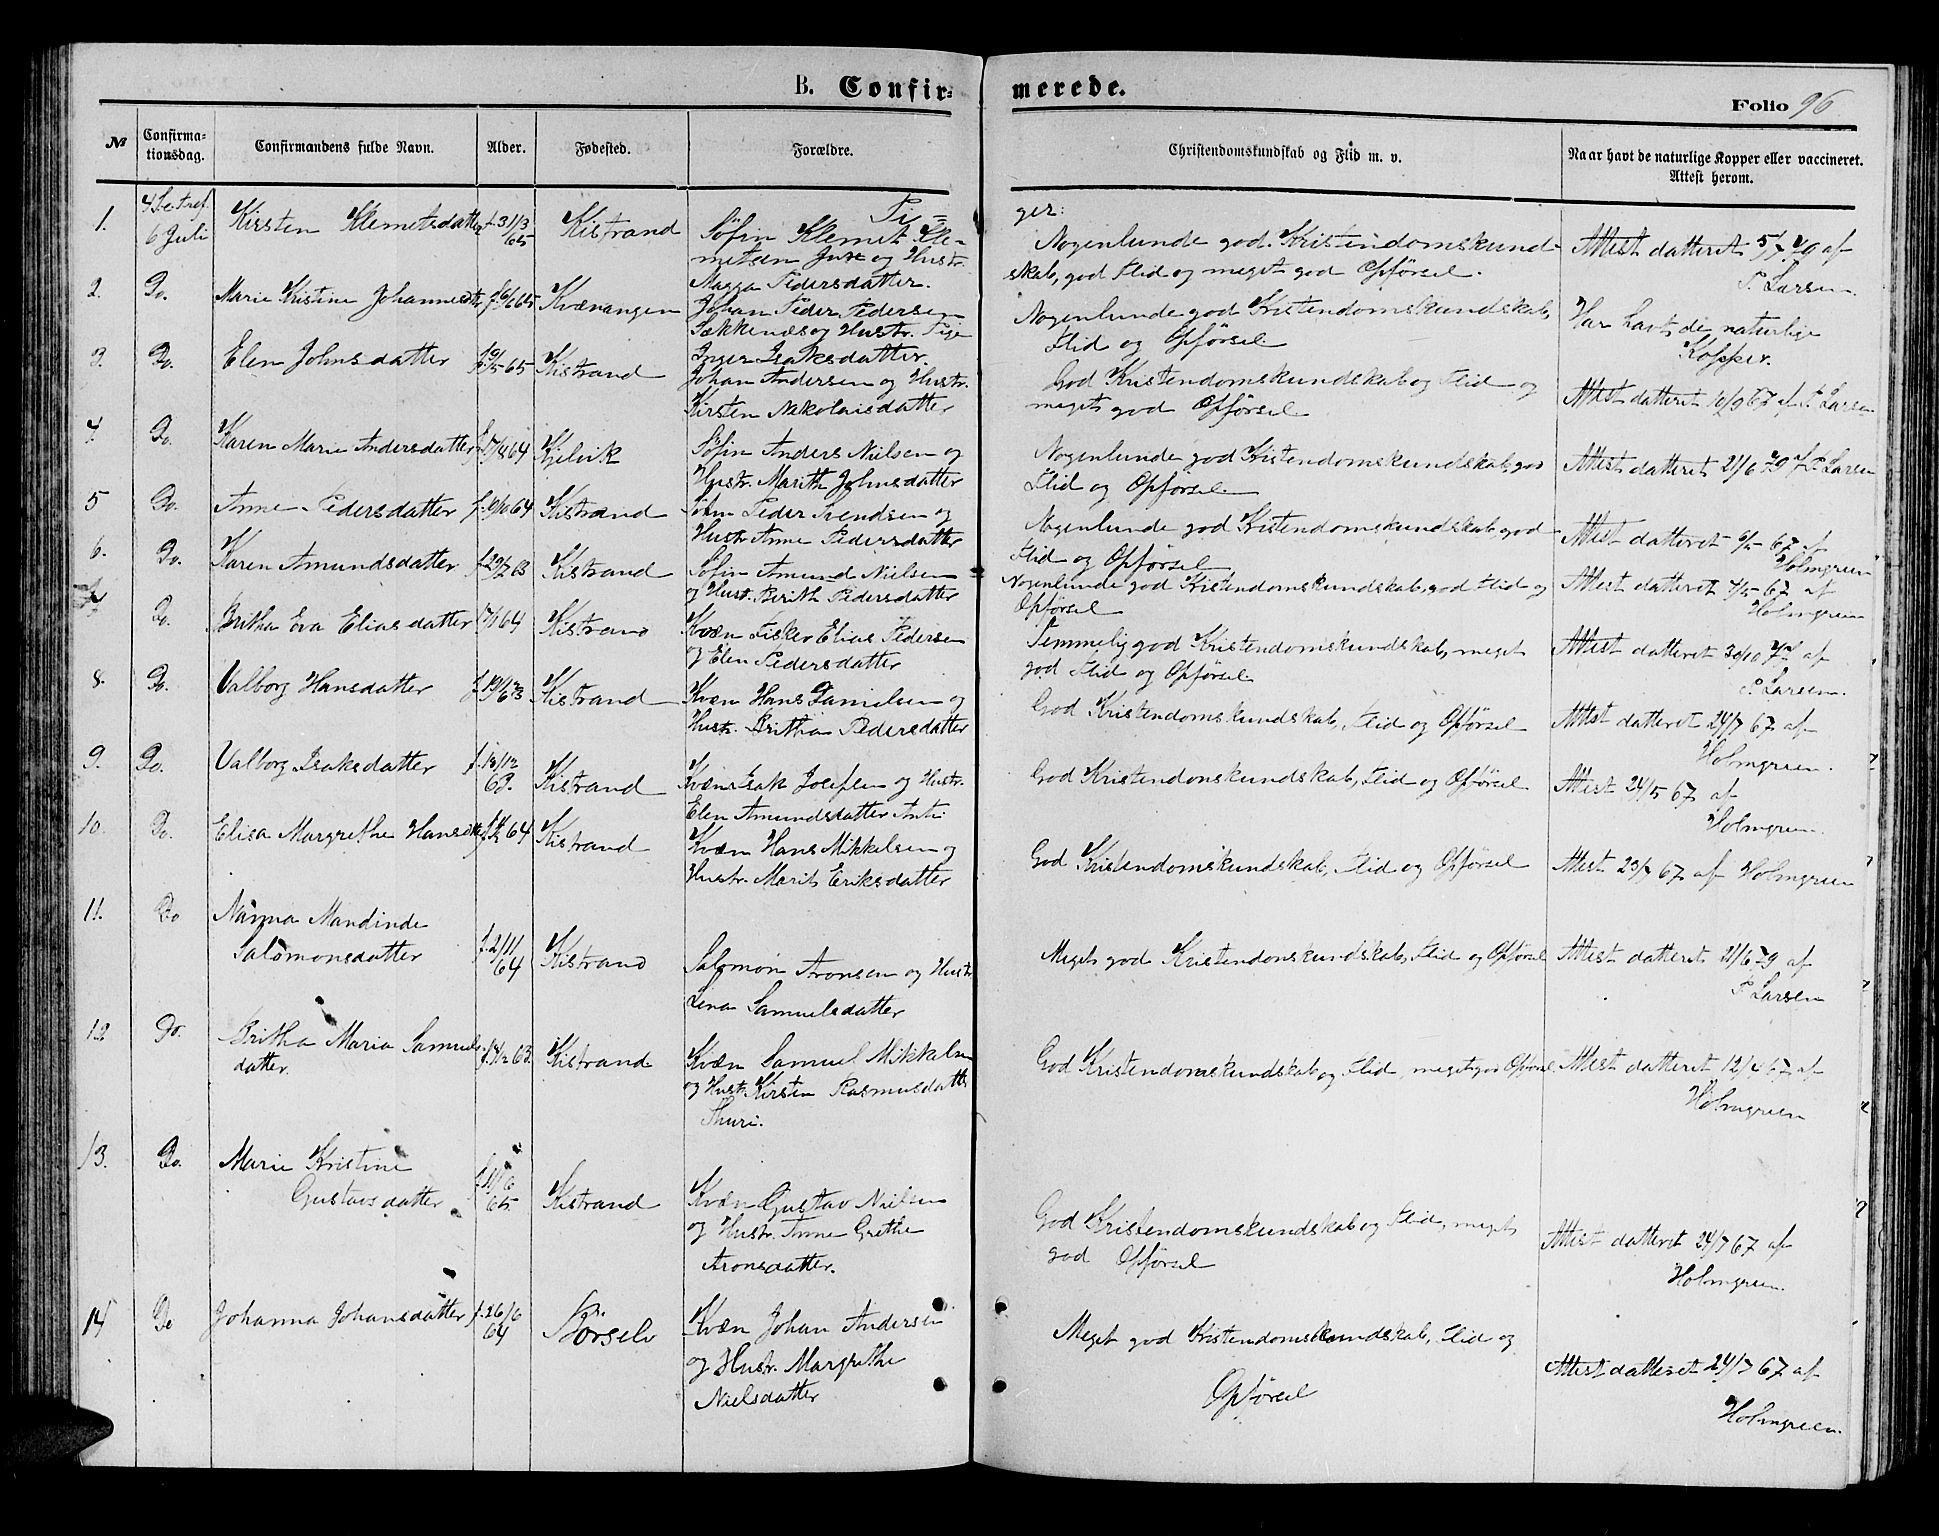 B. Confir-
merede.
Folio 96
№
Confirma-
tionsdag.
Confirmandens fulde Navn.
Alder.
Fødested.
Forældre.
Christendomskundskab og Flid m. v.
Naar havt de naturlige Kopper eller vaccineret.
Attest herom.
Pi=
ger:
1.
6 Juli
Kirsten Klemetsdatter
f. 31/3
65
Kistrand
Söfin Klemet Kle-
metsen og Hustr.
Magga Pedersdatter.
Nogenlunde god Kristendomskund-
skab, god Flid og meget god Opförsel.
Attest datteret af
P. Larsen.
2.
Do.
Marie Kristine Johannesdtr
Kvænangen
Johan Peder Pedersen
og Hustr.
Inger Isaksdatter.
Nogenlunde god Kristendomskundskab,
Flid og Opförsel.
Har havt de naturlige
Kopper.
3.
Do.
Elen Johnsdatter
Kistrand
Johan Andersen og Hustr.
Kirsten Nikolaisdatter
God Kristendomskundskab og Flid og
meget god Opförsel
Attest datteret 10/9 67 af P. Larsen
4.
Do.
Karen Marie Andersdatter
f. 17/8 64
Kjelvik
Söfin Anders Nielsen og
Hustr. Marith Johnsdatter
Nogenlunde god Kristendomskundskab, god
Flid og Opförsel.
Attest datteret 21/6 79 P. Larsen
5
Do.
Anne Pedersdatter
f. 19/10 64
Kistrand
Söfin Peder Svendsen og
Hustr. Anne Pedersdatter
Nogenlunde god Kristendomskundskab, god
Flid og Opförsel
Attest datteret 6/5 67 af
Holmgreen
6.
Do.
Karen Amundsdatter
f. 29/7 63
Kistrand
Söfin Amund Nielsen
og Hustr. Berith Pedersdatter
Nogenlunde god Kristendomskundskab, god Flid og
Opförsel
Attest datteret 7/5 67 af
Holmgreen
7.
Do.
Britha Eva Eliasdatter
Kistrand
Kvæn Fisker Elias Pedersen
og Elen Pedersdatter
Temmelig god Kristendomskundskab, meget
god Flid og Opförsel
Attest datteret 30/10 af
P. Larsen.
8.
Do.
Valborg Hansdatter
Kistrand
Kvæn Hans Danielsen og
Hustr. Britha Pedersdatter
God Kristendomskundskab, Flid og Opförsel
Attest datteret 24/7 67 af
Holmgreen.
9.
Do.
Valborg Isaksdatter
63.
Kistrand
Kvæn Isak Josefsen og Hustr.
Elen Amundsdatter Anti
God Kristendomskundskab, Flid og Opförsel
Attest 24/5 67 af
Holmgreen.
10.
Do.
Elisa Margrethe Hansdtr
Kistrand
Kvæn Hans Mikkelsen og
Hustr. Marit Eriksdatter
God Kristendomskundskab, Flid og Opförsel
Attest 23/7 67 af Holmgreen
11.
Do
Nanna Mandinde
Salomonsdatter
f. 2/11
64
Kistrand
Salomon Aronsen og Hustr
Lena Samuelsdatter
Meget god Kristendomskundskab, Flid og Opförsel
Attest datteret 21/6 79 af
P Larsen
12
Do.
Britha Maria Samuels-
datter.
Kistrand
Kvæn Samuel Mikkelsen
og Hustr. Kirsten Rasmusdatter
Thuri.
God Kristendomskundskab og Flid, meget god Opförsel
Attest datteret 12/4 67 af
Holmgreen
13.
Do.
Marie Kristine
Gustavsdatter
f. 11/6
65
Kistrand
Kvæn Gustav Nielsen
og Hustr. Anne Grethe
Aronsdatter.
God Kristendomskundskab og Flid, meget
god Opförsel
Attest datteret 24/7 67 af
Holmgreen
14
Do
Johanna Johansdatter
f. 26/6
64
Börselv
Kvæn Johan Andersen
og Hustr. Margrethe
Nielsdatter
Meget god Kristendomskundskab, Flid og
Opförsel
Attest datteret 24/7 67 af
Holmgreen.